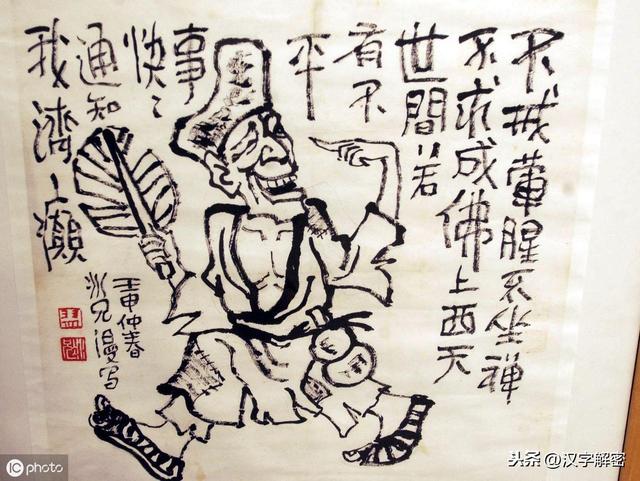 不戒葷腥不坐禪
不求成佛上西天
世間若
有不
平
事
快〻
通知
我濟〻癲
壬申仲春
冰兄漫写
iC photo
头条 @汉字解密